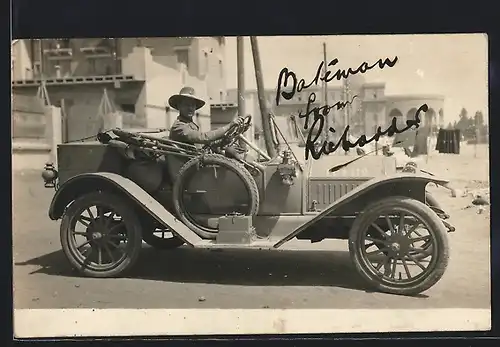 Batéman
from
Richards